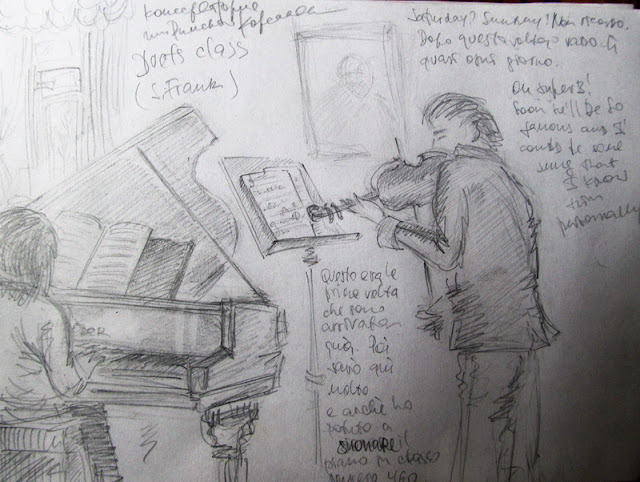 консерватория
им. Римского-Корсакова
Duets class
(S. Frank)
Saturday? Sunday! Non ricordo.
Dopo questa volta vado lì
quasi ogni giorno.
Oh super!
Soon he'll be so
famous and I
could be
sure that
I know
him
personally
Questo era le
prime volta
che sono
arrivata
quà. Poi
sarò qui
molto
e anche ho
potuto
suonare il
piano in classe